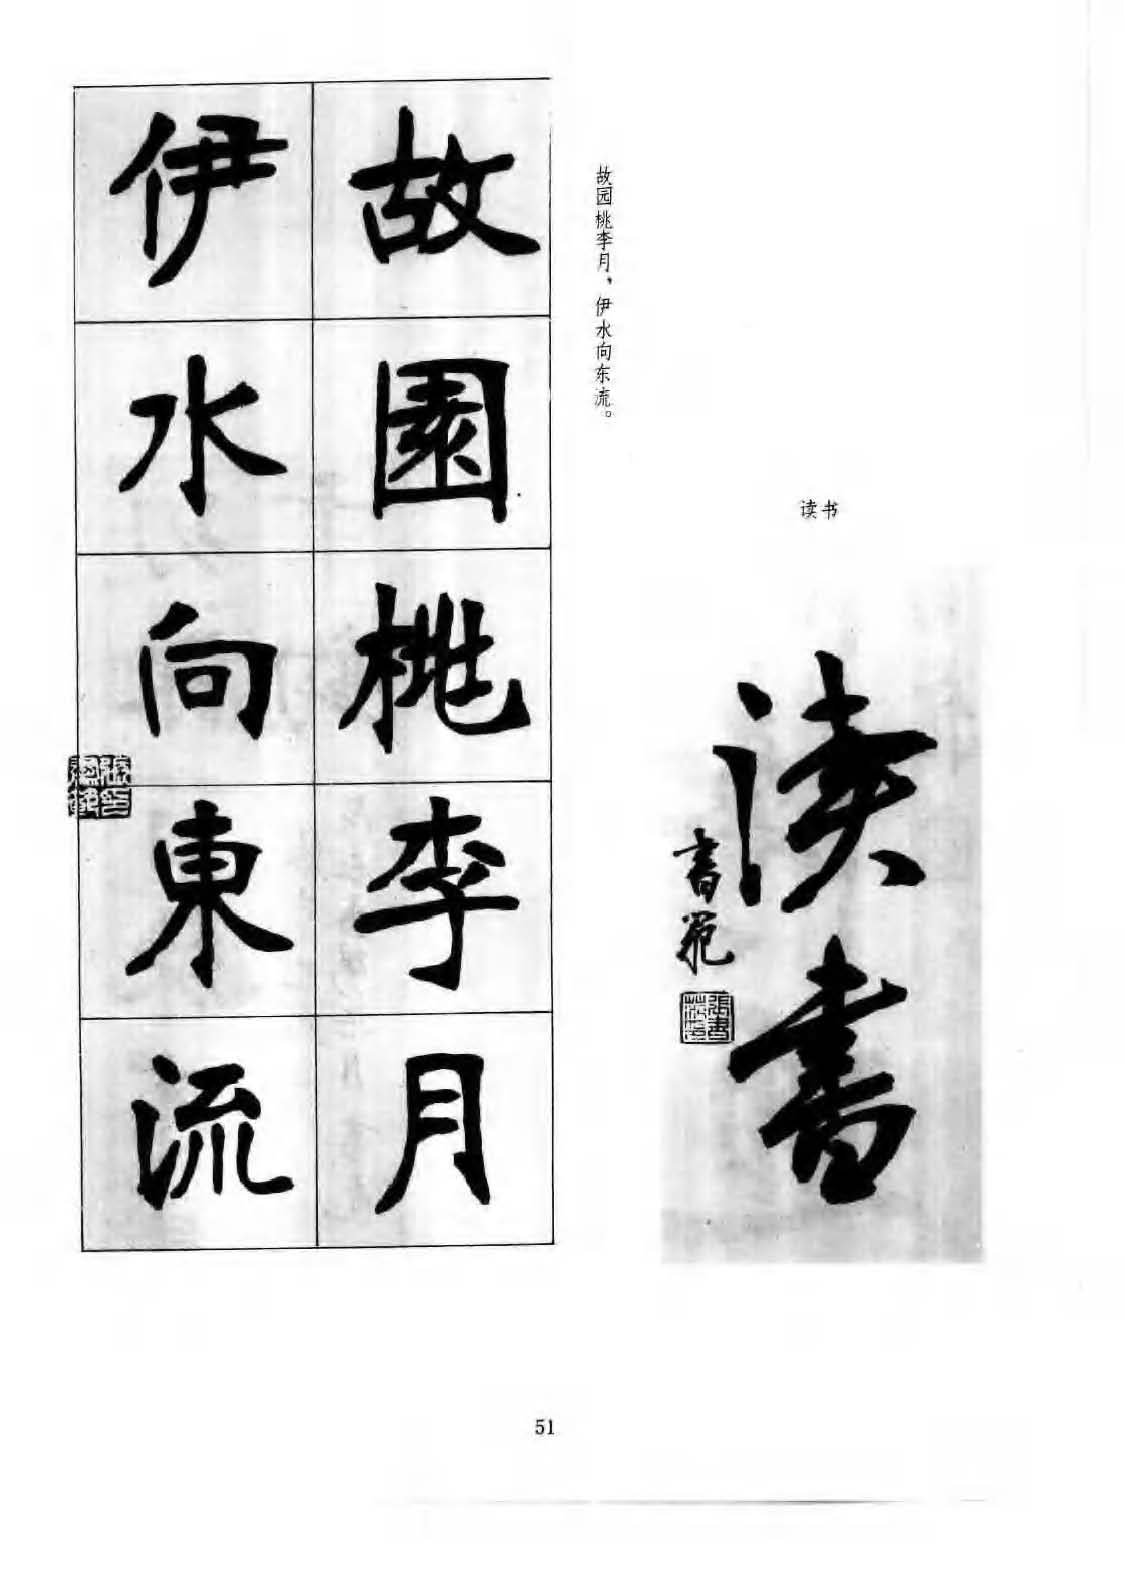 读书
读書
書范
張書范印
故园桃李月，伊水向东流。
故園桃李月
伊水向東流
51